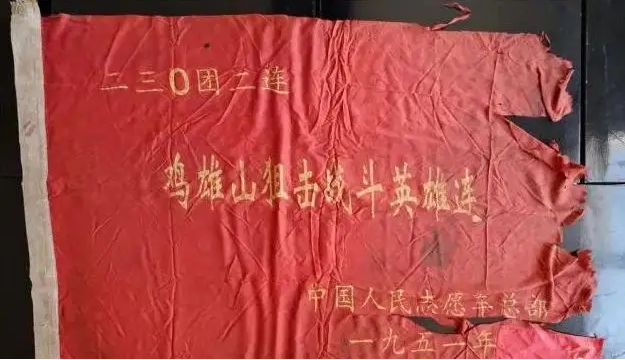 二三〇团二连
鸡雄山狙击战斗英雄连
中国人民志愿军总部
一九五一年